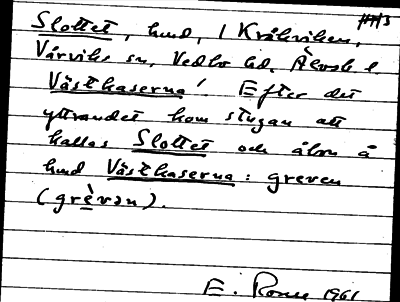 Slottet, hund, i Kråkviken,
Vårviks sn, Vedbo hd, Älvsb. l.
Västkaserna! Efter det
yttrandet kom stugan att
kallas Slottet och ålon å
hund Västkaserna: greven
(grèvən).
E. 1961